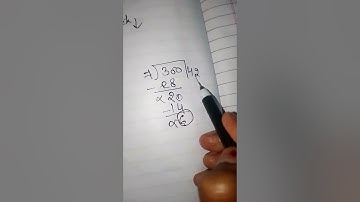 7)300(42
-28
×20
-14
×6